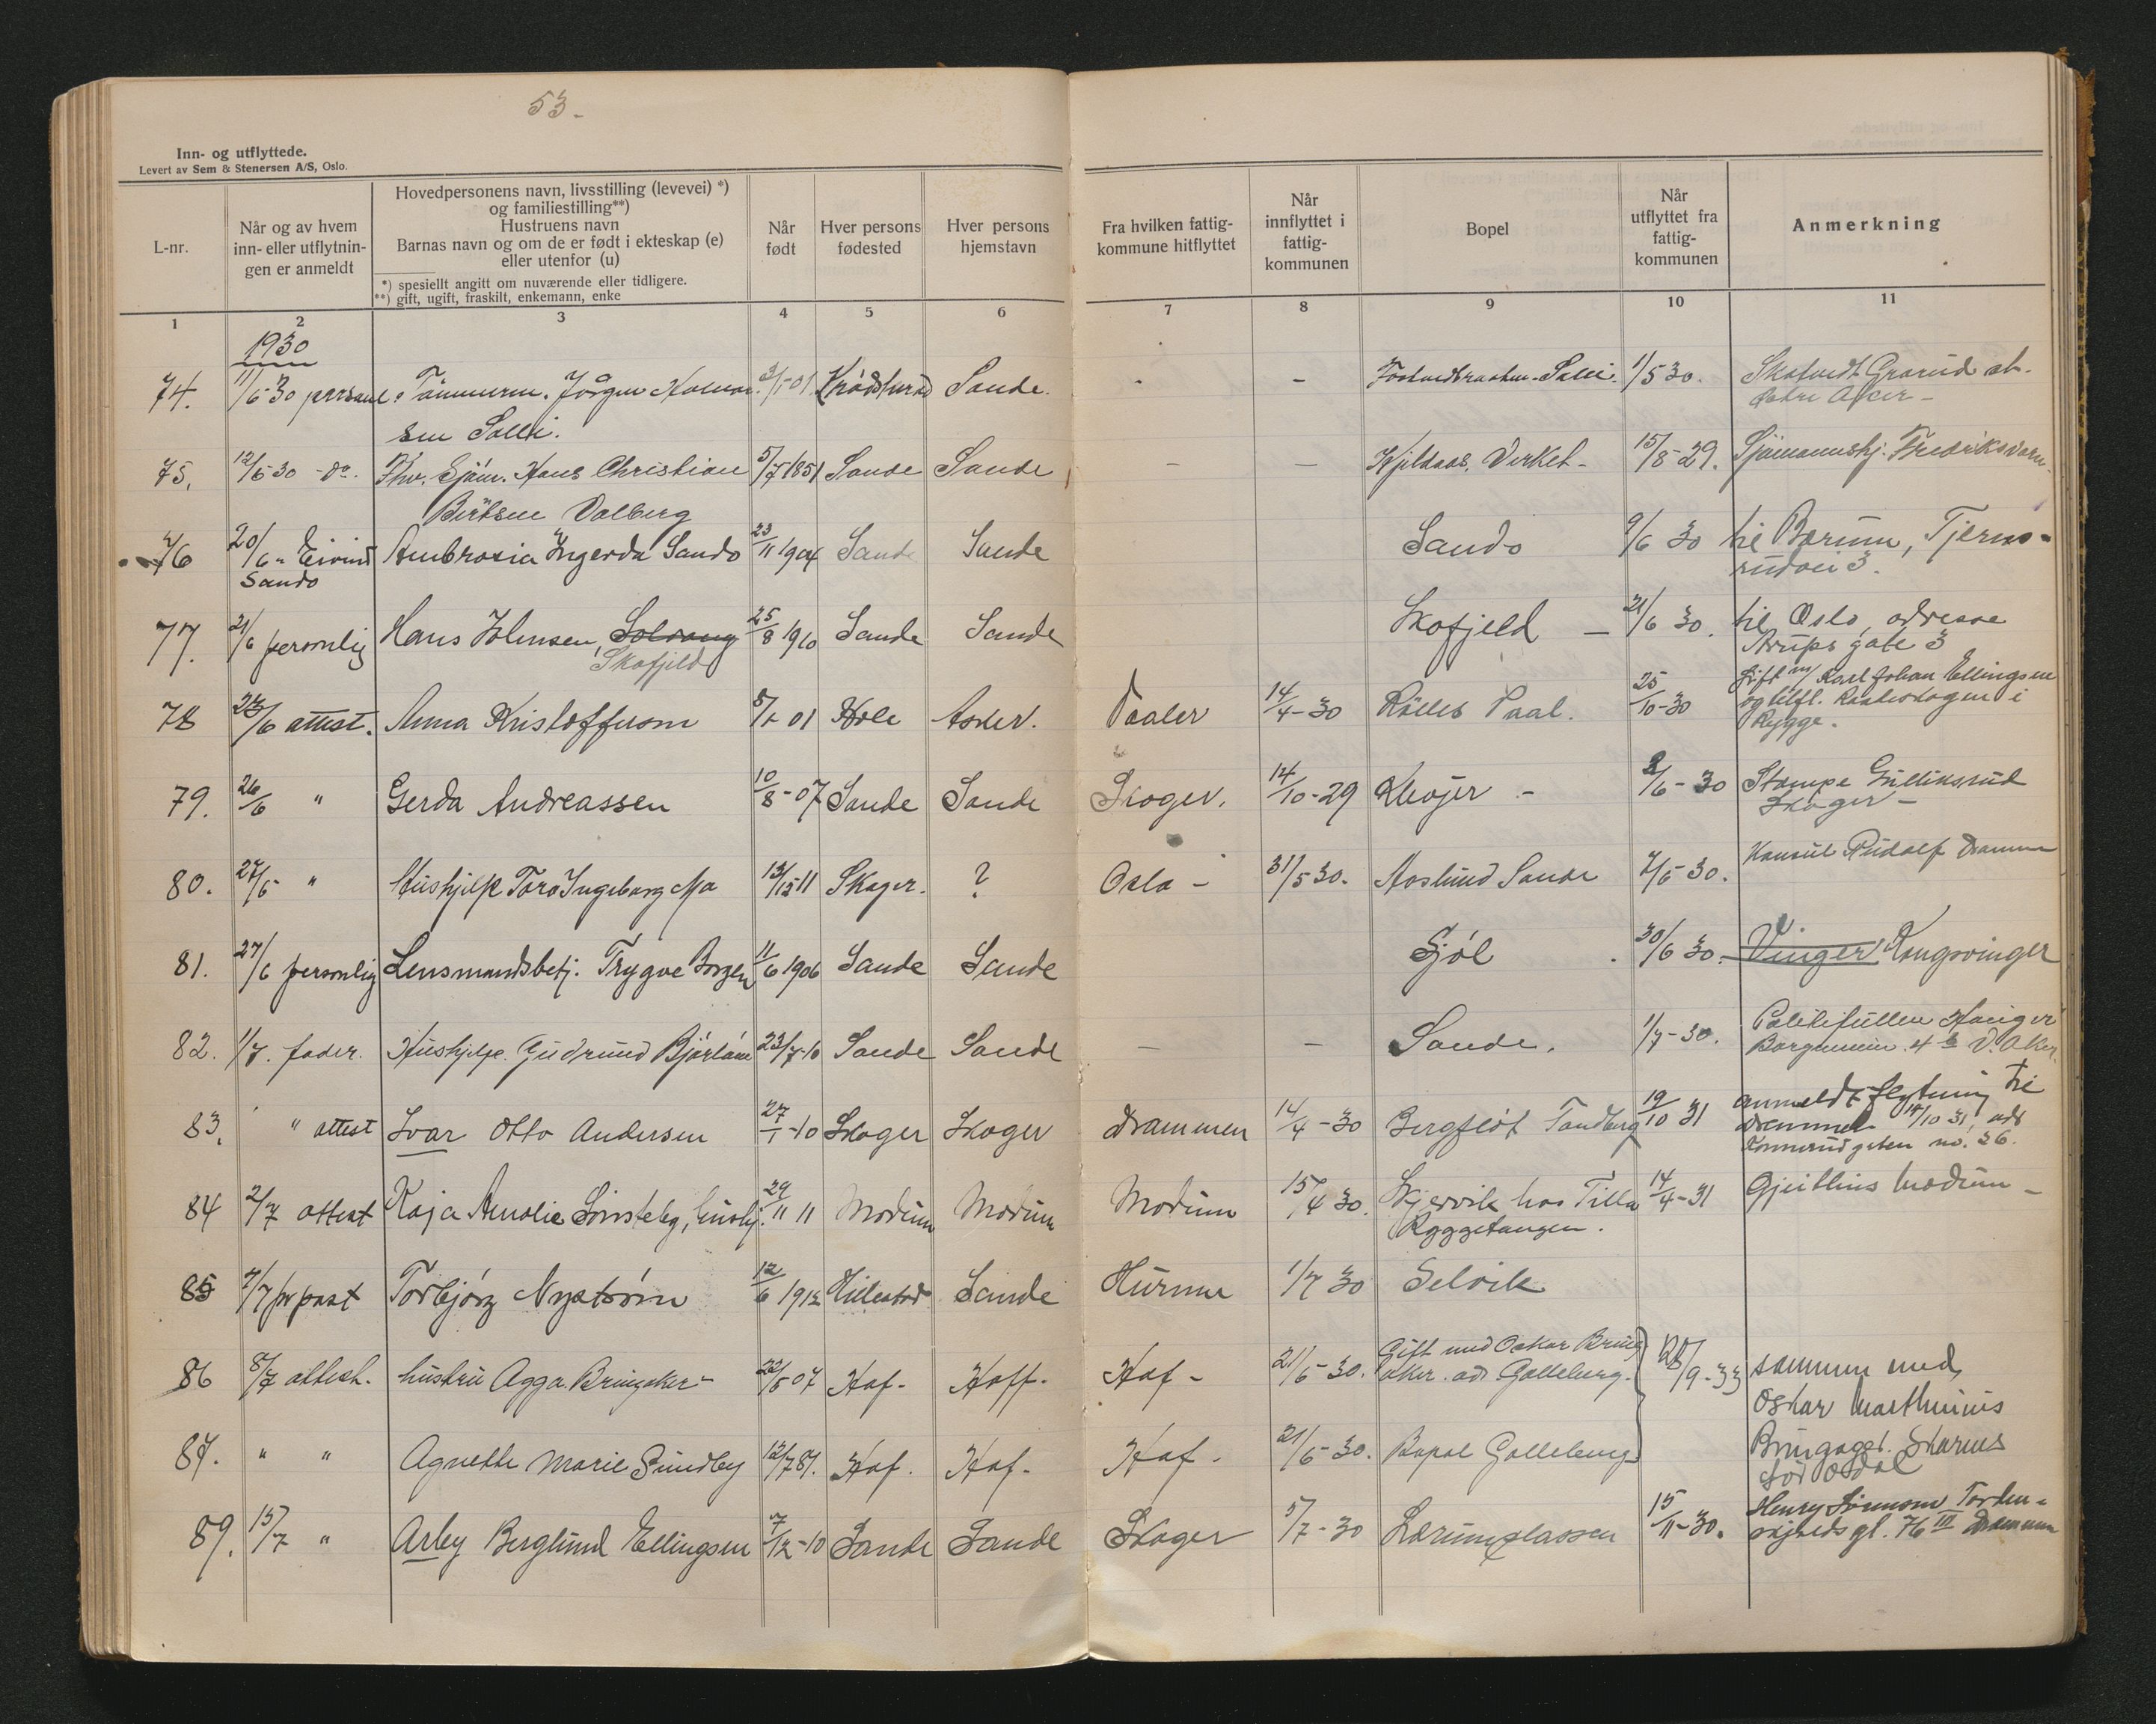 53.
Inn- og utflyttede.
Levert av Sem & Stenersen A/S, Oslo.
L-nr.
Når og av hvem
inn- eller utflytnin-
gen er anmeldt
Hovedpersonens navn, livsstilling (levevei) *)
og familiestilling**)
Hustruens navn
Barnas navn og om de er født i ekteskap (e)
eller utenfor (u)
*) spesiellt angitt om nuværende eller tidligere.
**) gift, ugift, fraskilt, enkemann, enke
Når
født
Hver persons
fødested
Hver persons
hjemstavn
Fra hvilken fattig-
kommune hitflyttet
Når
innflyttet i
fattig-
kommunen
Bopel
Når
utflyttet fra
fattig-
kommunen
Anmerkning
1 2 3 4 5 6 7 8 9 10 11
1930
74. 11/6 30 Jörgen Sande. - - 1/5 30.
sen Solli. Aker -
75. 12/6 30 - do. Hans Christian 5/7 1851 Sande Sande - - Virket - 15/8 - 29. Sjömannshj. Fredriksvern
Dalberg
76 20/6 - Eivind Ambrosia Ingerda Sando 23/11 1904 Sande Sande Sando 9/6 30 til Bærum, Tjerns-
Sando rudvei 3.
77. 21/6 personlig Hans Johnsen, Solvang 25/8 1910 Sande Sande Skofjeld - 21/6 30. til Oslo, adresse
Skofjeld Arups gate 3
78 26/6 attest. Anna Kristoffersen 8/1 01 Hole Asker. Vaaler 14/4 - 30 25/10 - 30 Gift m/ Karl Johan Ellingsen
og tilfl. i
Rygge.
79. 26/6 " Gerda Andreassen 10/8 - 07 Sande Sande Skoger. 14/10 - 29 Kløjer - 2/6 - 30 Stampe Gulliksrud
Skoger -
80. 27/6 " Hushjelp Tora Ingeborg Mo Skoger. ? Oslo - 31/5 30. Aaslund Sande 7/6 - 30. Konsul Rudolf Drammen
81. 27/6 personlig Lensmandsbetj. Trygve Borgen 11/6 1906 Sande Sande Sjøl 30/6 30. Vinger Kongsvinger
82. 1/7. fader. Hushjelp. Gudrund 23/7 - 10 Sande Sande - - Sande. 1/7 - 30. Haciger
4 b V. Aker.
83. " attest Ivar Otto Andersen 27/1 - 10 Skoger Skoger Drammen 14/4 - 30 Bergfløt Tandberg 19/10 31 anmeldt flytning til
Drammen 14/10 31, adr
Konnerudgaten no. 36.
84 2/7 attest Kaja Amalie hushj. 29/11 11 Modum Modum Modum 15/4 30. Skjervik hos Tilla 14/4 - 31 Gjeithus Modum -
Ryggetangen.
85 7/7 pr post Torbjörg Nyström 12/6 1912 Hillestad Sande Hurum 1/7 30 Selvik
86 8/7 attest. hustru Agga Bringaker - 22/8 07 Hof - Hoff - Hof - 21/6 - 30. Gift med Oskar Bring
aker. adr Galleberg. 28/9 - 33 sammen med
Oskar Marthinius
87. " " Agnethe Marie Sundby 12/7 81. Hof. Hof - Hof - 21/6 - 30. Bopel Galleberg
89. 15/7 " Arby Berglund Ellingsen 7/12 - 10 Sande Sande Skoger 5/7 - 30 Lærumplassen 15/11 - 30. Henry Torden-
skjolds gt. 76 III Drammen